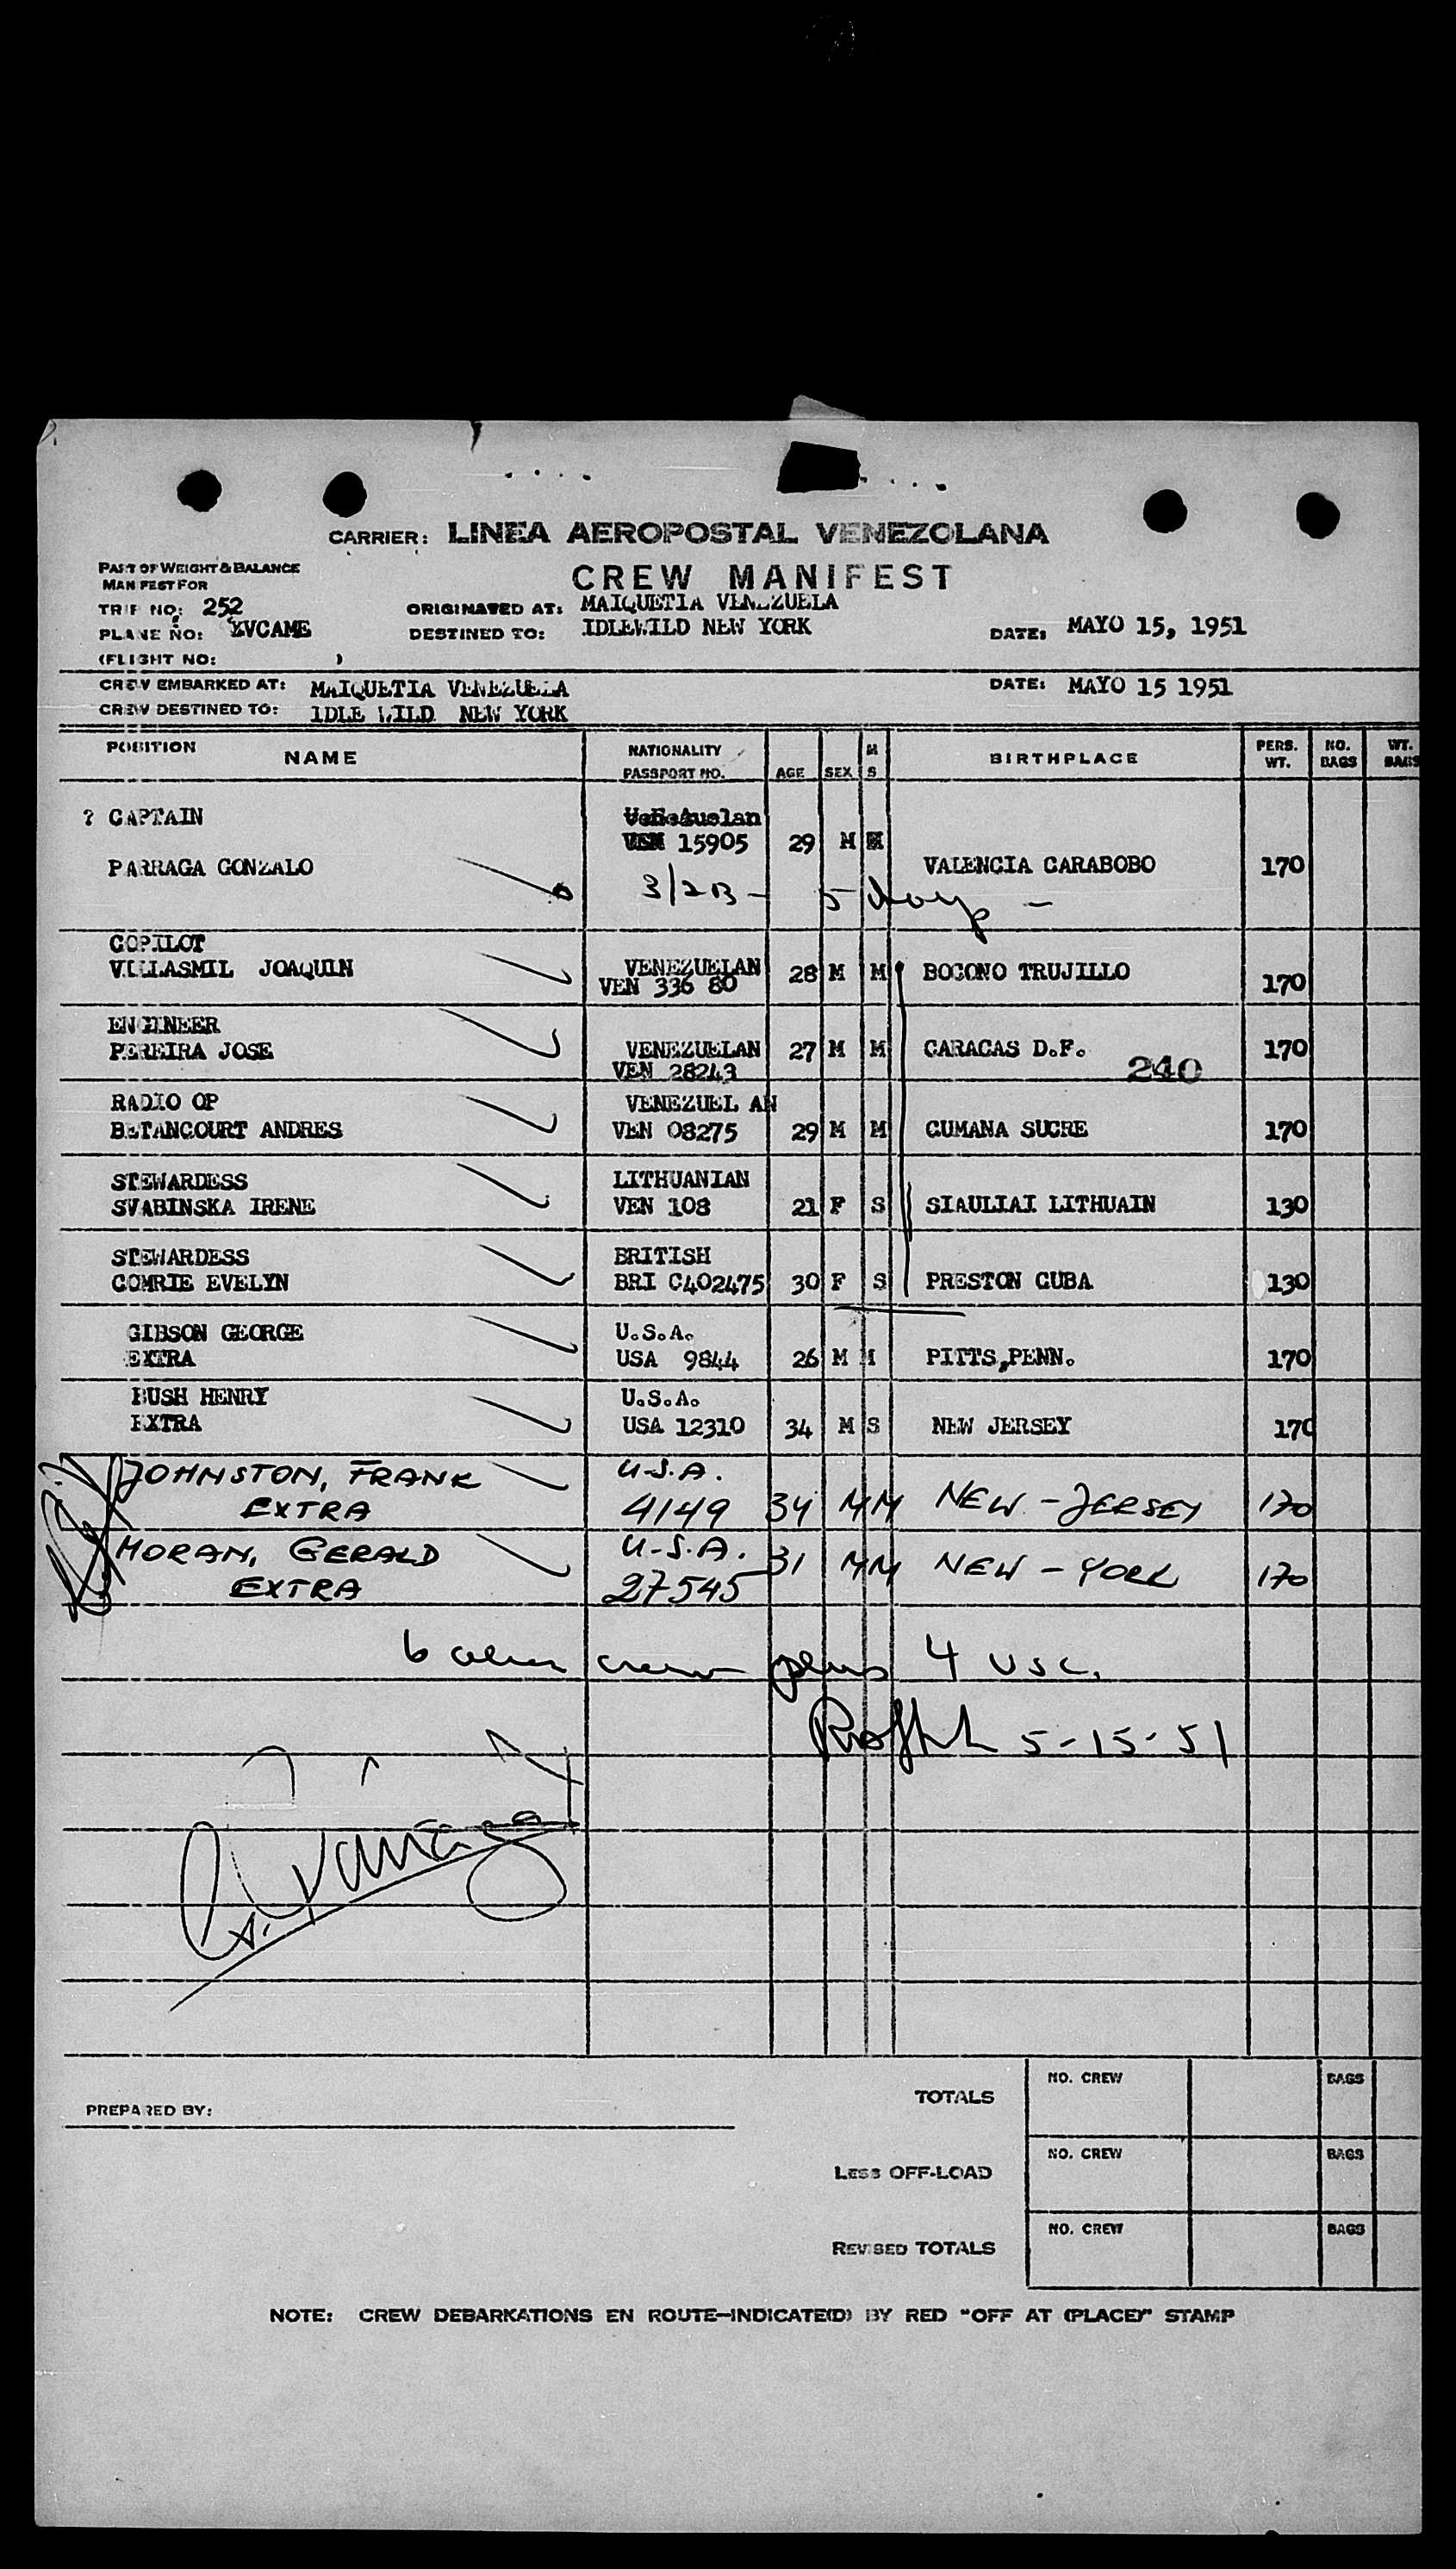 CARRIER: LINEA AEROPOSTAL VENEZOLANA
PART OF WEIGHT & BALANCE
MANIFEST FOR
CREW MANIFEST
TRIP NO: 252
ORIGINATED AT: MAIQUETIA VENEZUELA
PLANE NO: YVCAME
DESTINED TO: IDLEWILD NEW YORK
DATE: MAYO 15, 1951
(FLIGHT NO: )
CREW EMBARKED AT: MAIQUETIA VENEZUELA
DATE: MAYO 15 1951
CREW DESTINED TO: IDLE WILD NEW YORK
POSITION NAME NATIONALITY PASSPORT NO. AGE SEX M S BIRTHPLACE PERS. WT. NO. BAGS WT. BAGS
? CAPTAIN Venezuelan
VEN 15905 29 M
PARRAGA GONZALO VALENCIA CARABOBO 170
3/2B - 5 days -
COPILOT
VILLASMIL JOAQUIN VENEZUELAN 28 M M BOCONO TRUJILLO 170
VEN 336 80
ENGINEER
PEREIRA JOSE VENEZUELAN 27 M M CARACAS D.F. 170
VEN 28243 240
RADIO OP VENEZUEL AN
BETANCOURT ANDRES VEN 08275 29 M M CUMANA SUCRE 170
STEWARDESS LITHUANIAN
SVABINSKA IRENE VEN 108 21 F S SIAULIAI LITHUAIN 130
STEWARDESS BRITISH
COMRIE EVELYN BRI C402475 30 F S PRESTON CUBA 130
GIBSON GEORGE U.S.A.
EXTRA USA 9844 26 M M PITTS,PENN. 170
BUSH HENRY U.S.A.
EXTRA USA 12310 34 M S NEW JERSEY 170
JOHNSTON, FRANK U.S.A.
EXTRA 4149 34 M M NEW-JERSEY 170
MORAN, GERALD U.S.A. 31 M M NEW-YORK 170
EXTRA 27545
6 alien crew plus 4 USC.
5-15-51
PREPARED BY:
TOTALS NO. CREW BAGS
LESS OFF-LOAD NO. CREW BAGS
REVISED TOTALS NO. CREW BAGS
NOTE: CREW DEBARKATIONS EN ROUTE—INDICATE(D) BY RED "OFF AT (PLACE)" STAMP